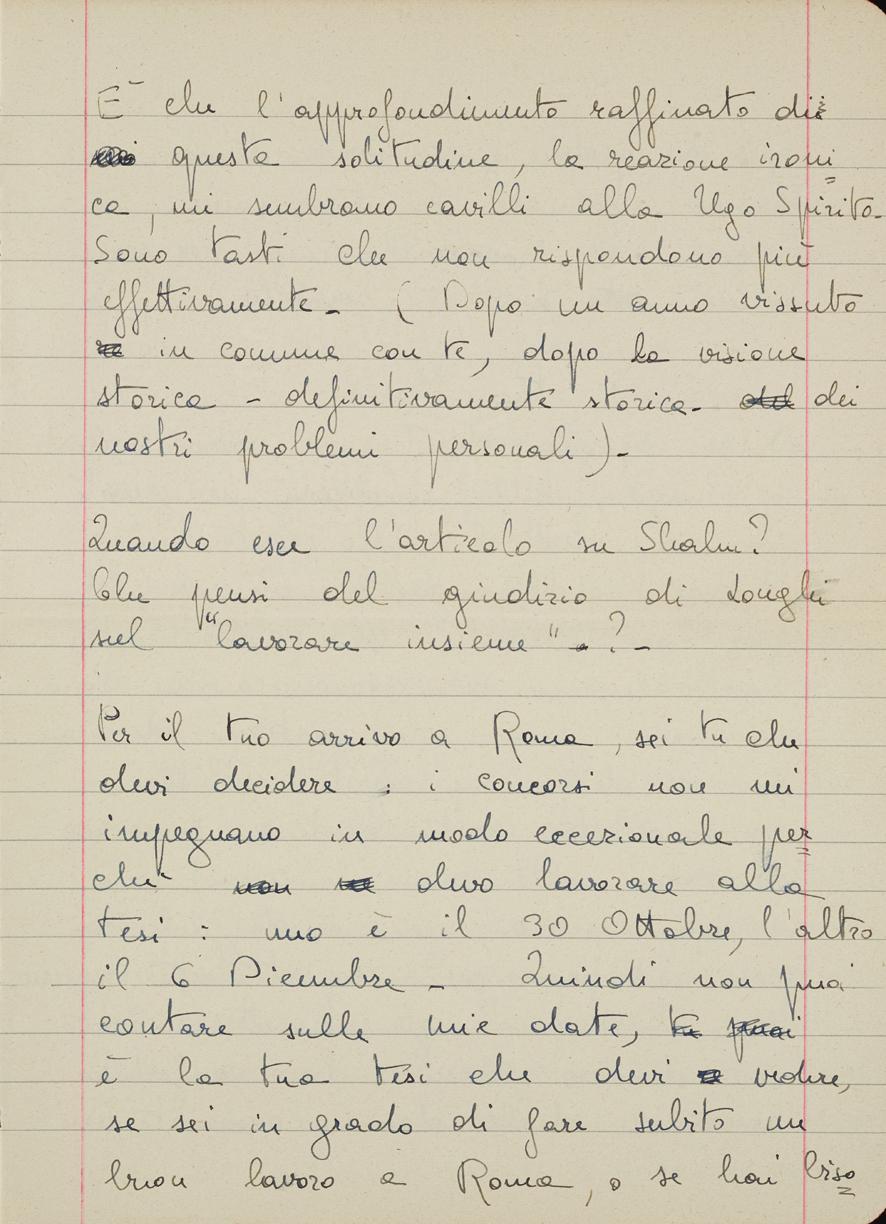 E' che l'approfondimento raffinato di
questa solitudine, la reazione ironi=
ca, mi sembrano cavilli alla Ugo Spirito.
Sono tasti che non rispondono più
effettivamente. (Dopo un anno vissuto
in comune con te, dopo la visione
storica - definitivamente storica - dei
nostri problemi personali).
Quando esce l'articolo su Skalm?
Che pensi del giudizio di Longhi
sul "lavorare insieme" - ? -
Per il tuo arrivo a Roma, sei tu che
devi decidere : i concorsi non mi
impegnano in modo eccezionale per=
chè non devo lavorare alla
tesi : uno è il 30 Ottobre, l'altro
il 6 Dicembre - Quindi non puoi
contare sulle mie date,
è la tua tesi che devi vedere,
se sei in grado di fare subito un
buon lavoro a Roma, o se hai biso=